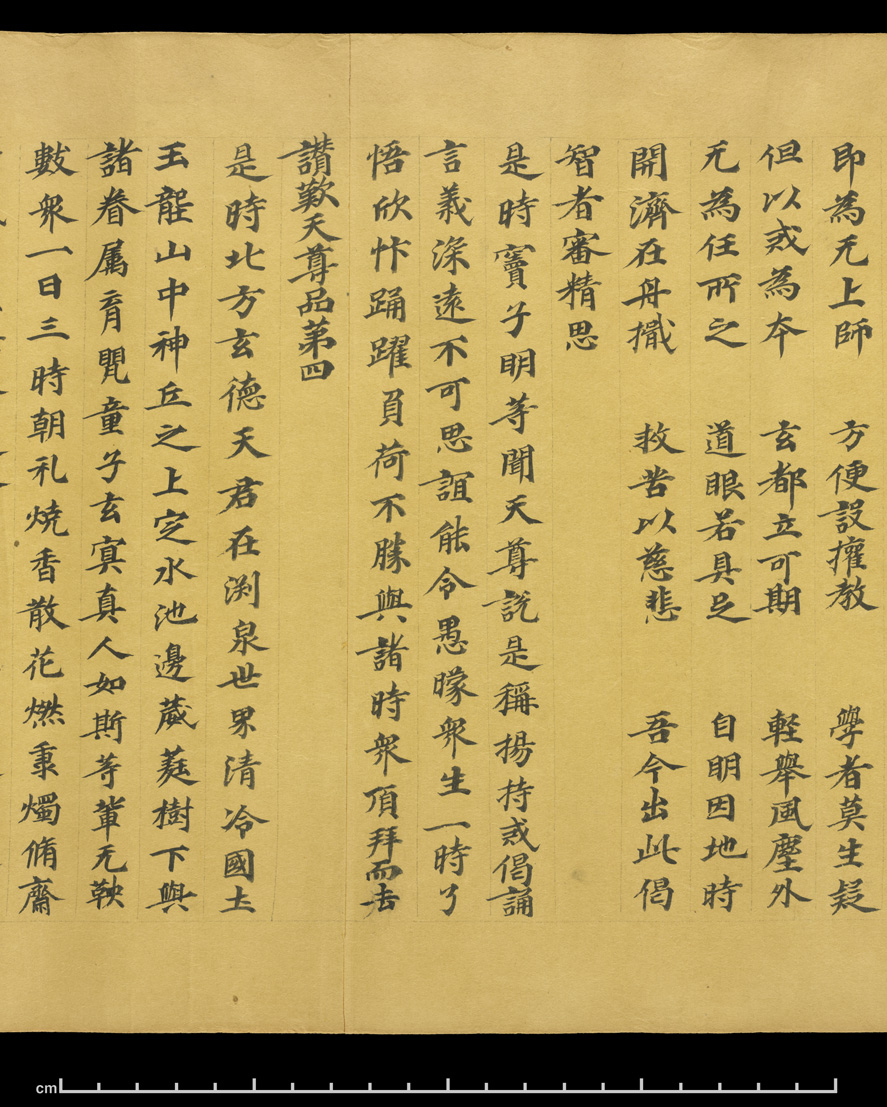 即為无上師 方便設權教 學者莫生疑
但以或為本 玄都立可期 軽舉風塵外
无為任所之 道眼若具足 自明因地時
開濟在舟檝 救苦以慈悲 吾今出此偈
智者審精思
是時寶子明等聞天尊說是稱揚持或偈誦
言義深遠不可思誼能令愚曚衆生一時了
悟欣忭踊躍負荷不勝與諸時衆頂拜而去
讃歎天尊品第四
是時北方玄德天君在渕泉世界清冷國土
玉龍山中神丘之上定水池邊葳蕤樹下與
諸眷属育嬰童子玄寘真人如斯等輩无鞅
數衆一日三時朝礼燒香散花燃秉燭脩齋
cm